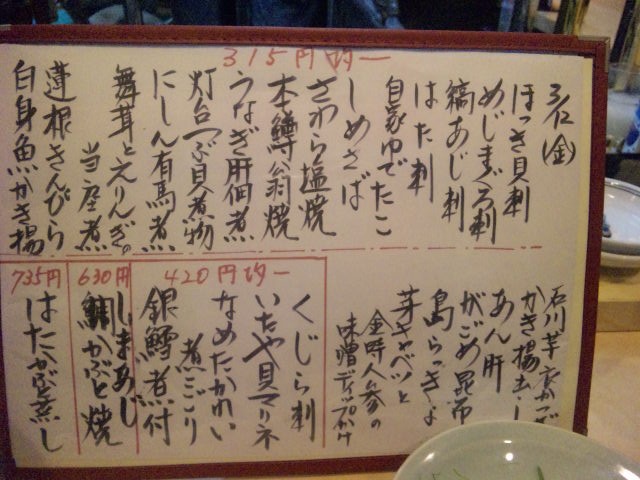 3/12(金)
315円均一
ほっき貝刺
めじまぐろ刺
縞あじ刺
はた刺
自家ゆでたこ
しめさば
さわら塩焼
本鱒翁焼
うなぎ肝佃煮
灯台つぶ貝煮物
にしん有馬煮
舞茸とえりんぎ。
当座煮
蓮根きんぴら
白身魚かき揚
石川芋衣かつぎ
かき揚出し
あん肝
がごめ昆布
島らっきょ
芽キャベツと
金時人参の
味噌ディップかけ
420円均一
くじら刺
いたや貝マリネ
なめたかれい
煮こごり
銀鱈煮付
630円
しまあじ
鯛かぶと焼
735円
はたかぶと蒸し